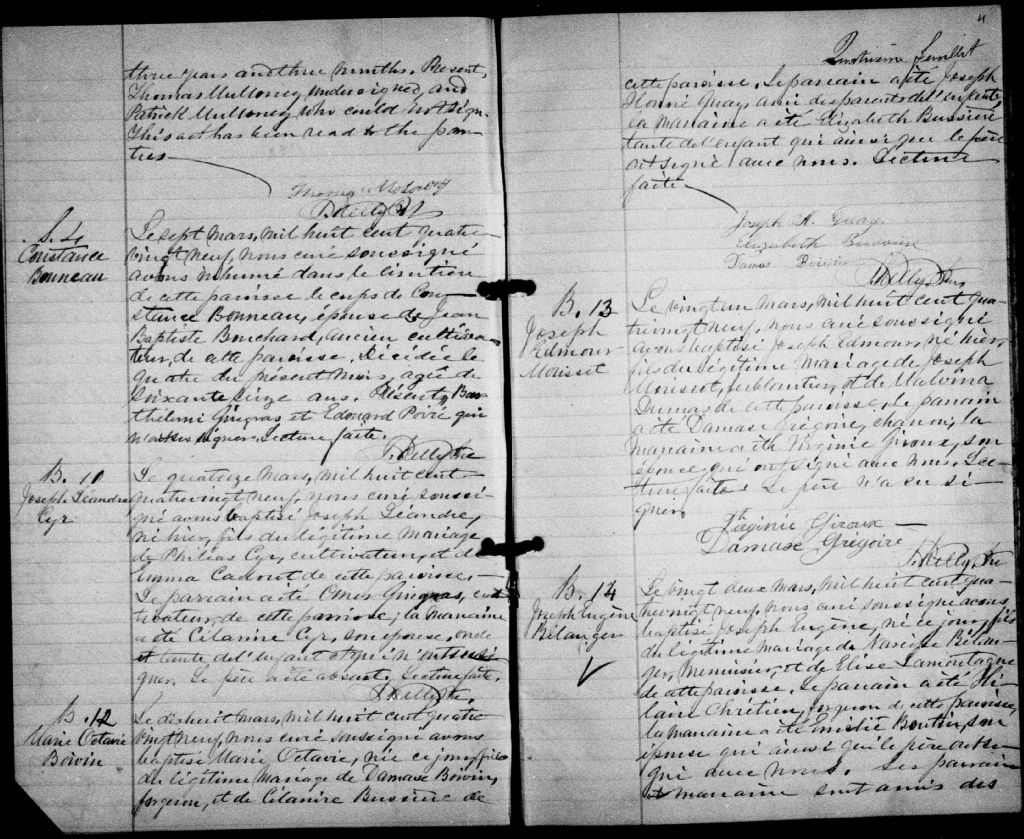 three years and three months. Present,
Thomas Mulloney undersigned, and
Patrick Mulloney who could not sign.
This act has been read to the par-
ties
S. 4
Constance
Bonneau
Le sept Mars, mil huit cent quatre
vingt neuf, nous curé soussigné
avons inhumé dans le cimetière
de cette paroisse le corps de Con-
stance Bonneau, épouse de Jean
Baptiste Bouchard, ancien cultiva-
teur, de cette paroisse. Décédée le
quatre du présent mois, agée de
soixante seize ans. Présents, Bar-
thélemi Gingras et Edouard Poiré qui
signer. Lecture faite.
B. 10
Joseph Léandre
Cyr
Le quatorze Mars, mil huit cent
quatrevingt neuf, nous curé soussi-
gné avons baptisé Joseph Léandre,
né hier, fils du légitime mariage
de Philias Cyr, cultivateur, et de
Emma de cette paroisse.
Le parrain a été Omer Gingras, cul-
tivateur, de cette paroisse; la marraine
a été Célanire Cyr, son épouse, oncle
et tante de l'enfant
gner. Le père a été absent. Lecture faite.
B. 12
Marie Octavie
Boivin
Le dixhuit Mars, mil huit cent quatre
vingt neuf, nous curé soussigné avons
baptisé Marie Octavie, née ce jour, fille
du légitime mariage de Damase Boivin,
forgeron, et de Célanire Bussière de
4
Quatrième feuillet
cette paroisse. Le parrain a été Joseph
Honoré Guay, ami des parents de l'enfant,
la marraine a été Elizabeth Bussière
tante de l'enfant qui ainsi que le père
ont signé avec nous. Lecture
faite
Joseph H. Guay
Elizabeth Bussière
Damas Boivin
B. 13
Joseph
Edmour
Moisset
Le vingt un Mars, mil huit cent qua-
trevingt neuf, nous curé soussigné
avons baptisé Joseph Edmour, né hier,
fils du légitime mariage de Joseph
ferblantier, et de Malvina
Dumas de cette paroisse. Le parrain
a été Damase Grégoire, la
marraine a été Virginie Giroux, son
épouse qui ont signé avec nous. Lec-
ture faite. Le père n'a su si-
gner.
Virginie Giroux
Damase Grégoire
B. 14
Joseph Eugène
Bélanger
Le vingt deux Mars, mil huit cent qua-
trevingt neuf, nous curé soussigné avons
baptisé Joseph Eugène, né ce jour, fils
du légitime mariage de Narcisse Bélan-
ger, menuisier, et de Elise Lamontagne
de cette paroisse. Le parrain a été Hi-
laire Chrétien, forgeron de cette paroisse,
la marraine a été Emélie Boutin, son
épouse qui ainsi que le père ont si-
gné avec nous. Les parrain
et marraine sont amis des